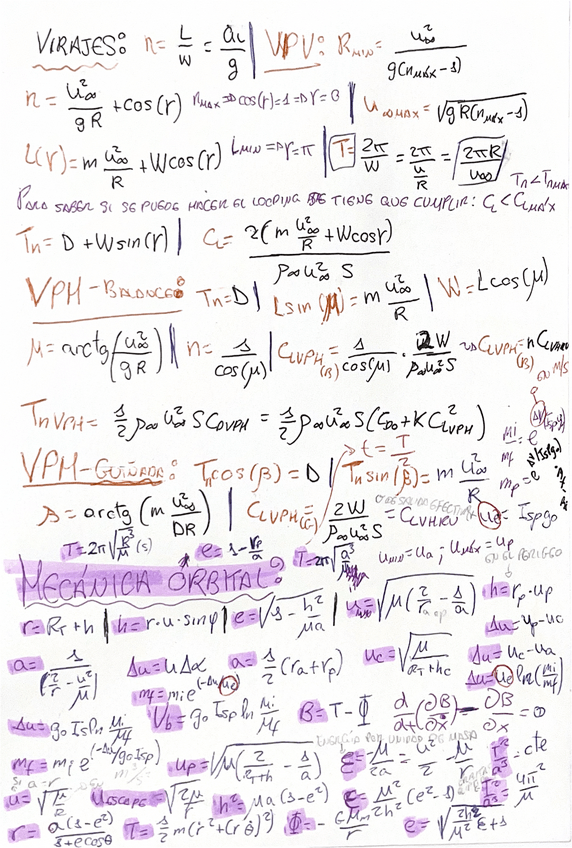 VIRAJES: n = L/W = aL/g | VPV: R_MIN = u∞²/g(n_MÁX-1)
n = u∞²/gR + cos(γ) n_MAX ⇒ cos(γ)=1 ⇒ γ=0 | u∞MAX = √gR(n_MÁX-1)
L(γ) = m u∞²/R + W cos(γ) L_MIN ⇒ γ=π | T = 2π/W = 2π/(u/R) = 2πR/u∞
Tn < Tn_MÁX
PARA SABER SI SE PUEDE HACER EL LOOPING SE TIENE QUE CUMPLIR: CL < CL_MÁX
Tn = D + W sin(γ) | CL = 2(m u∞²/R + W cosγ)/ρ∞ u∞² S
VPH-BALANCEO: Tn = D | L sin(μ) = m u∞²/R | W = L cos(μ)
μ = arctg(u∞²/gR) | n = 1/cos(μ) | CLVPH(B) = 1/cos(μ) · 2W/ρ∞u∞²S ⇒ CLVPH(B) = n CLVHRU
EN M/S
TnVPH = 1/2 ρ∞ u∞² S CDVPH = 1/2 ρ∞ u∞² S (CD0 + K C²LVPH)
mi/mf = e^(Δu/Isp g0)
VPH-GUIÑADA: Tn cos(β) = D | Tn sin(β) = m u∞²/R
t = T/2
β = arctg(m u∞²/DR) | CLVPH(G) = 2W/ρ∞u∞²S = CLVHRU ue = Isp g0
T = 2π√(R³/μ) (s) e = 1 - rp/a T = 2π√(a³/μ) u_MIN = ua ; u_MAX = up
EN EL PERIGEO
MECÁNICA ORBITAL:
r = RT + h | h = r·u·sinφ | e = √(1 - h²/μa) | u = √(μ(2/r - 1/a)) h = rp·up
Δu = up - uc
a = 1/(2/r - u²/μ) Δu = uΔα a = 1/2 (ra + rp) uc = √(μ/(RT + hc)) Δu = uc - ua
mf = mi e^(-Δu/ue) Δu = ue ln(mi/mf)
Δu = g0 Isp ln mi/mf Vb = g0 Isp ln mi/mf B = T - Φ d/dt(∂B/∂ẋ) - ∂B/∂x = 0
ENERGÍA POR UNIDAD DE MASA
mf = mi e^(-Δu/g0 Isp) up = √(μ(2/(RT+h) - 1/a)) ε = -μ/2a = u²/2 - μ/r T²/a³ = cte
si a = r
u = √(μ/R) u_ESCAPE = √(2μ/r) h² = μa(1-e²) ε = μ²/2h² (e²-1) T²/a³ = 4π²/μ
r = a(1-e²)/(1+e cosθ) T = 1/2 m(ṙ² + (rθ̇)²) Φ = -GMm/r e = √(2h²/μ² ε + 1)